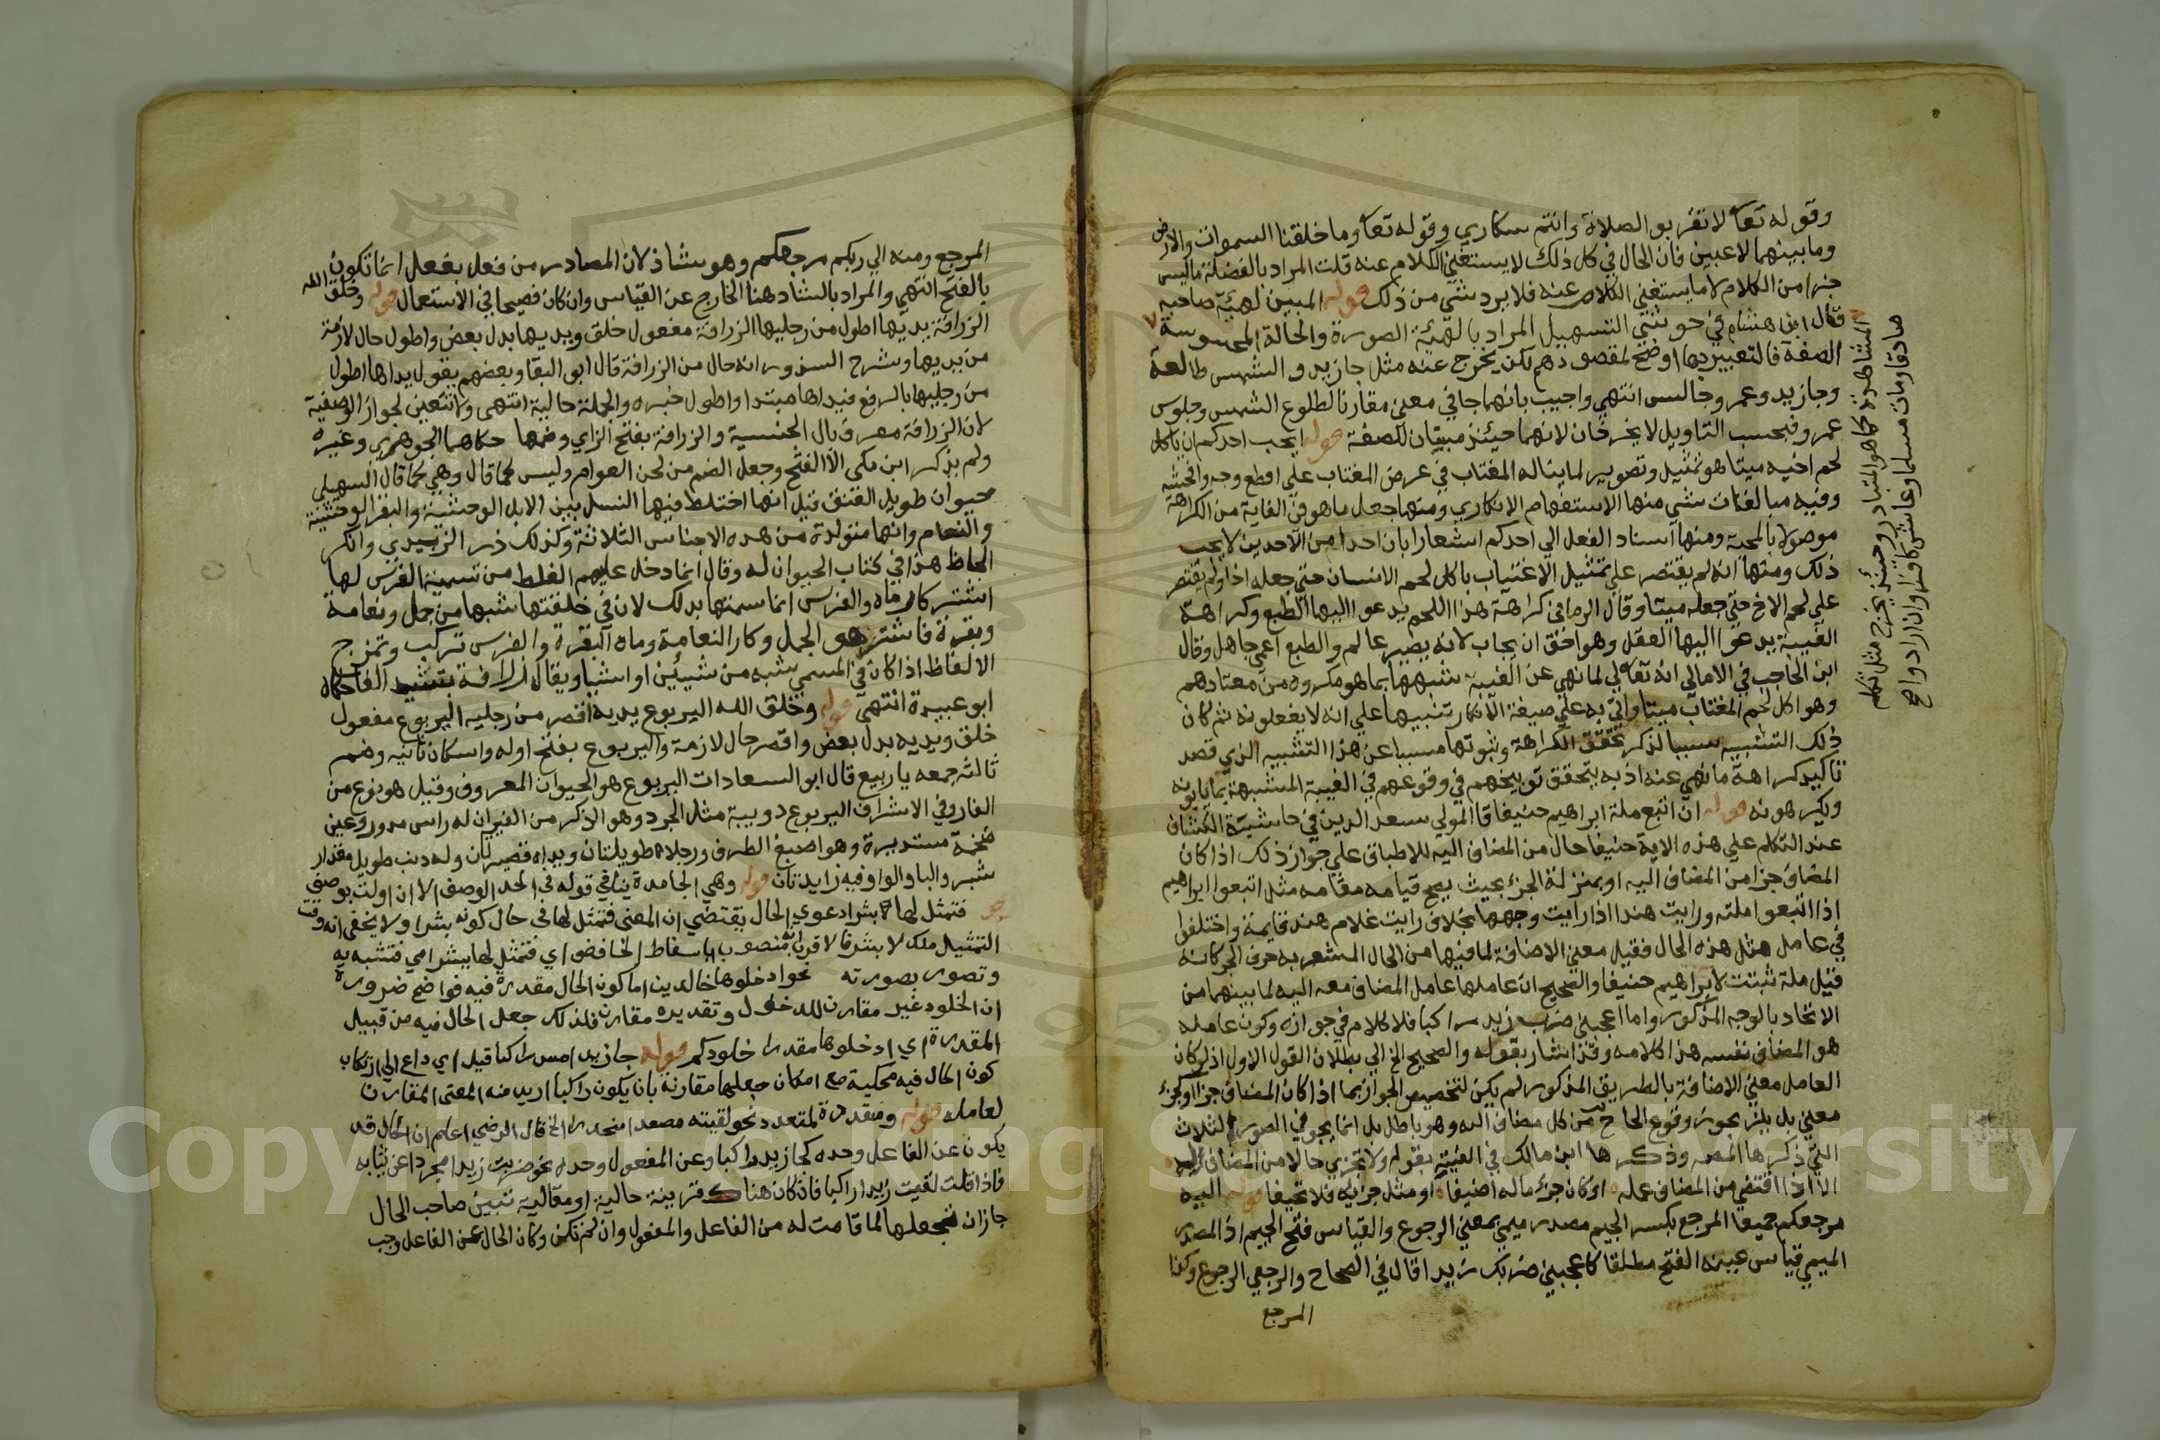 وقوله تعا لا تقربو الصلاة وانتم سكاري وقوله تعا وما خلقنا السموات والارض
وما بينهما لاعبين فان الحال في كل ذلك لا يستغني الكلام عنه قلت المراد بالفضلة ما ليس
جزا من الكلام لا ما يستغني الكلام عنه فلا يرد شي من ذلك قوله المبين لهيئة صاحبه
قال ابن هشام في حواشي التسهيل المراد بالهيئة الصورة والحالة المحسوسة
الصفة فالتعبير بها اوضح لمقصودهم لكن يخرج عنه مثل جا زيد والشمس طالعة
وجا زيد وعمرو جالس انتهي واجيب بانهما جا في معني مقارنا لطلوع الشمس وجلوس
عمرو فبحسب التاويل لا يخرجان لانهما حينئذ مبينان للصفة قوله ايحب احدكم ان ياكل
لحم اخيه ميتا هو تمثيل وتصوير لما يناله المغتاب في عرض المغتاب علي افظع وجه وافحشه
وفيه مبالغات شتي منها الاستفهام الانكاري ومنها جعل ما هو في الغاية من الكراهة
موصولا بالمحبة ومنها اسناد الفعل الي احدكم اشعارا بان احدا من الاحدين لا يحب
ذلك ومنها انه لم يقتصر علي تمثيل الاغتياب باكل لحم الانسان حتي جعله اخا ولم يقتصر
علي لحم الاخ حتي جعله ميتا وقال الرماني كراهة هذا اللحم يدعوا اليها الطبع وكراهة
الغيبة يدعوا اليها العقل وهو احق ان يجاب لانه بصير عالم والطبع اعمي جاهل وقال
ابن الحاجب في الامالي انه تعالي لما نهي عن الغيبة شبهها بما هو مكروه من معتادهم
وهو اكل لحم المغتاب ميتا واتي به علي صيغة الانكار تنبيها علي انه لا يفعلونه ثم كان
ذلك التشبيه سببا لذكر تحقق الكراهة وثبوتها مسببا عن هذا التشبيه الذي قصد
تاكيد كراهة ما نهي عنه اذ به يتحقق توبيخهم في وقوعهم في الغيبة المشبهة بما يابونه
ويكرهونه قوله ان اتبع ملة ابراهيم حنيفا قا المولي سعد الدين في حاشية الكشاف
عند التكلم علي هذه الاية حنيفا حال من المضاف اليه للاطباق علي جواز ذلك اذا كان
المضاف جزا من المضاف اليه او بمنزلة الجزء بحيث يصح قيامه مقامه مثل اتبعوا ابراهيم
اذا اتبعوا ملته ورايت هندا اذا رايت وجهها بخلاف رايت غلام هند قايمة واختلفوا
في عامل مثل هذه الحال فقيل معني الاضافة لما فيها من الحال المشعر به حرف الجر كانه
قيل ملة ثبتت لابراهيم حنيفا والصحيح ان عاملها عامل المضاف معه اليه لما بينهما من
الاتحاد بالوجه المذكور واما اعجبني ضرب زيد راكبا فلا كلام في جوازه وكون عامله
هو المضاف نفسه هذا كلامه وقد اشار بقوله والصحيح الخ الي بطلان القول الاول اذ لو كان
العامل معني الاضافة بالطريق المذكور لم يكن لتخصيص الجواز بما اذا كان المضاف جزا او كجزء
معني بل يلزم بجوز وقوع الحال من كل مضاف اليه وهو باطل بل انما يجوز في الصور الثلاث
التي ذكرها المص وذكرها ابن مالك في الفيته بقوله ولا تجز حالا من المضاف له
الا اذا اقتضي من المضاف عمله او كان جزء ماله اضيفا او مثل جزئه فلا تحيفا قوله اليه
مرجعكم جميعا المرجع بكسر الجيم مصدر ميمي بمعني الرجوع والقياس فتح الجيم اذ المصدر
الميمي قياس عينه الفتح مطلقا كاعجبني ضربك زيدا قال في الصحاح والرجعي الرجوع وكذا
المرجع
المشاطرة كما هو المتبادر وحينئذ يخرج مثل تكلم
صادقا ومات مسلما وعاش كافرا وان اراد واح
المرجع ومنه الي ربكم مرجعكم وهو شاذ لان المصادر من فعل يفعل انما تكون
بالفتح انتهي والمراد بالشاذ هنا الخارج عن القياس وان كان فصيحا في الاستعمال قوله وخلق الله
الزرافة يديها اطول من رجليها الزرافة مفعول خلق ويديها بدل بعض واطول حال لازمة
من يديها وشرح الشذور انه حال من الزرافة قال ابو البقا وبعضهم يقول يداها اطول
من رجليها بالرفع فيداها مبتدا واطول خبره والجملة حالية انتهي ولا تتعين لجواز الوصفية
لان الزرافة معرف بال الجنسية والزرافة بفتح الزاي وضمها حكاهما الجوهري وغيره
ولم يذكر ابن مكي الا الفتح وجعل الضم من لحن العوام وليس كما قال وهي كما قال السهيلي
حيوان طويل العنق قيل انها اختلط فيها النسل بين الابل الوحشية والبقر الوحشية
والنعام وانها متولدة من هذه الاجناس الثلاثة وكذلك ذكر الزبيدي وانكر
الجاحظ هذا في كتاب الحيوان له وقال انما دخل عليهم الغلط من تسمية الفرس لها
اشتر كاو ماه والفرس انما سمتها بذلك لان في خلقتها شبها من جمل ونعامة
وبقرة فاشتر هو الجمل وكاو النعامة وماه البقرة والفرس تركب وتمزج
الالفاظ اذا كان في المسمي شبه من شيئين او اشيا ويقال زرافة بتشديد الفا حكاه
ابو عبيدة انتهي قوله وخلق الله اليربوع يديه اقصر من رجليه اليربوع مفعول
خلق ويديه بدل بعض واقصر حال لازمة واليربوع بفتح اوله واسكان ثانيه وضم
ثالثه جمعه يرابيع قال ابو السعادات اليربوع هو الحيوان المعروف وقيل هو نوع من
الفار وفي الاشراف اليربوع دويبة مثل الجرد وهو الذكر من الفيران له راس مدور وعين
ضخمة مستديرة وهو اصبغ الطرف ورجلاه طويلتان ويداه قصيرتان وله ذنب طويل مقدار
شبر والبا والواو فيه زايدتان قوله وهي الجامدة ينافي قوله في الحد الوصف الا ان اولت بوصف
فتمثل لها بشرا دعوي الحال يقتضي ان المعني فتمثل لها في حال كونه بشرا ولا يخفي انه وقت
التمثيل ملك لا بشر فالاقرب انه منصوب باسقاط الخافض اي فتمثل لها ببشر اي فتشبه به
وتصور بصورته نحو ادخلوها خالدين اما كون الحال مقدرة فيه فواضح ضرورة
ان الخلود غير مقارن للدخول وتقديره مقارن فلذلك جعل الحال فيه من قبيل
المقدرة اي ادخلوها مقدرا خلودكم قوله جا زيد امس راكبا قيل اي داع الي ارتكاب
كون الحال فيه محكية مع امكان جعلها مقارنة بان يكون راكبا اريد منه المعني المقارن
لعامله قوله ومتعددة لمتعدد نحو لقيته مصعدا منحدرا الخ قال الرضي اعلم ان الحال قد
يكون عن الفاعل وحده كجا زيد راكبا وعن المفعول وحده نحو ضربت زيدا مجردا عن ثيابه
فاذا قلت لقيت زيدا راكبا فان كان هناك قرينة حالية او مقالية تبين صاحب الحال
جاز ان تجعلها لما قامت له من الفاعل والمفعول وان لم تكن وكان الحال عن الفاعل وجب